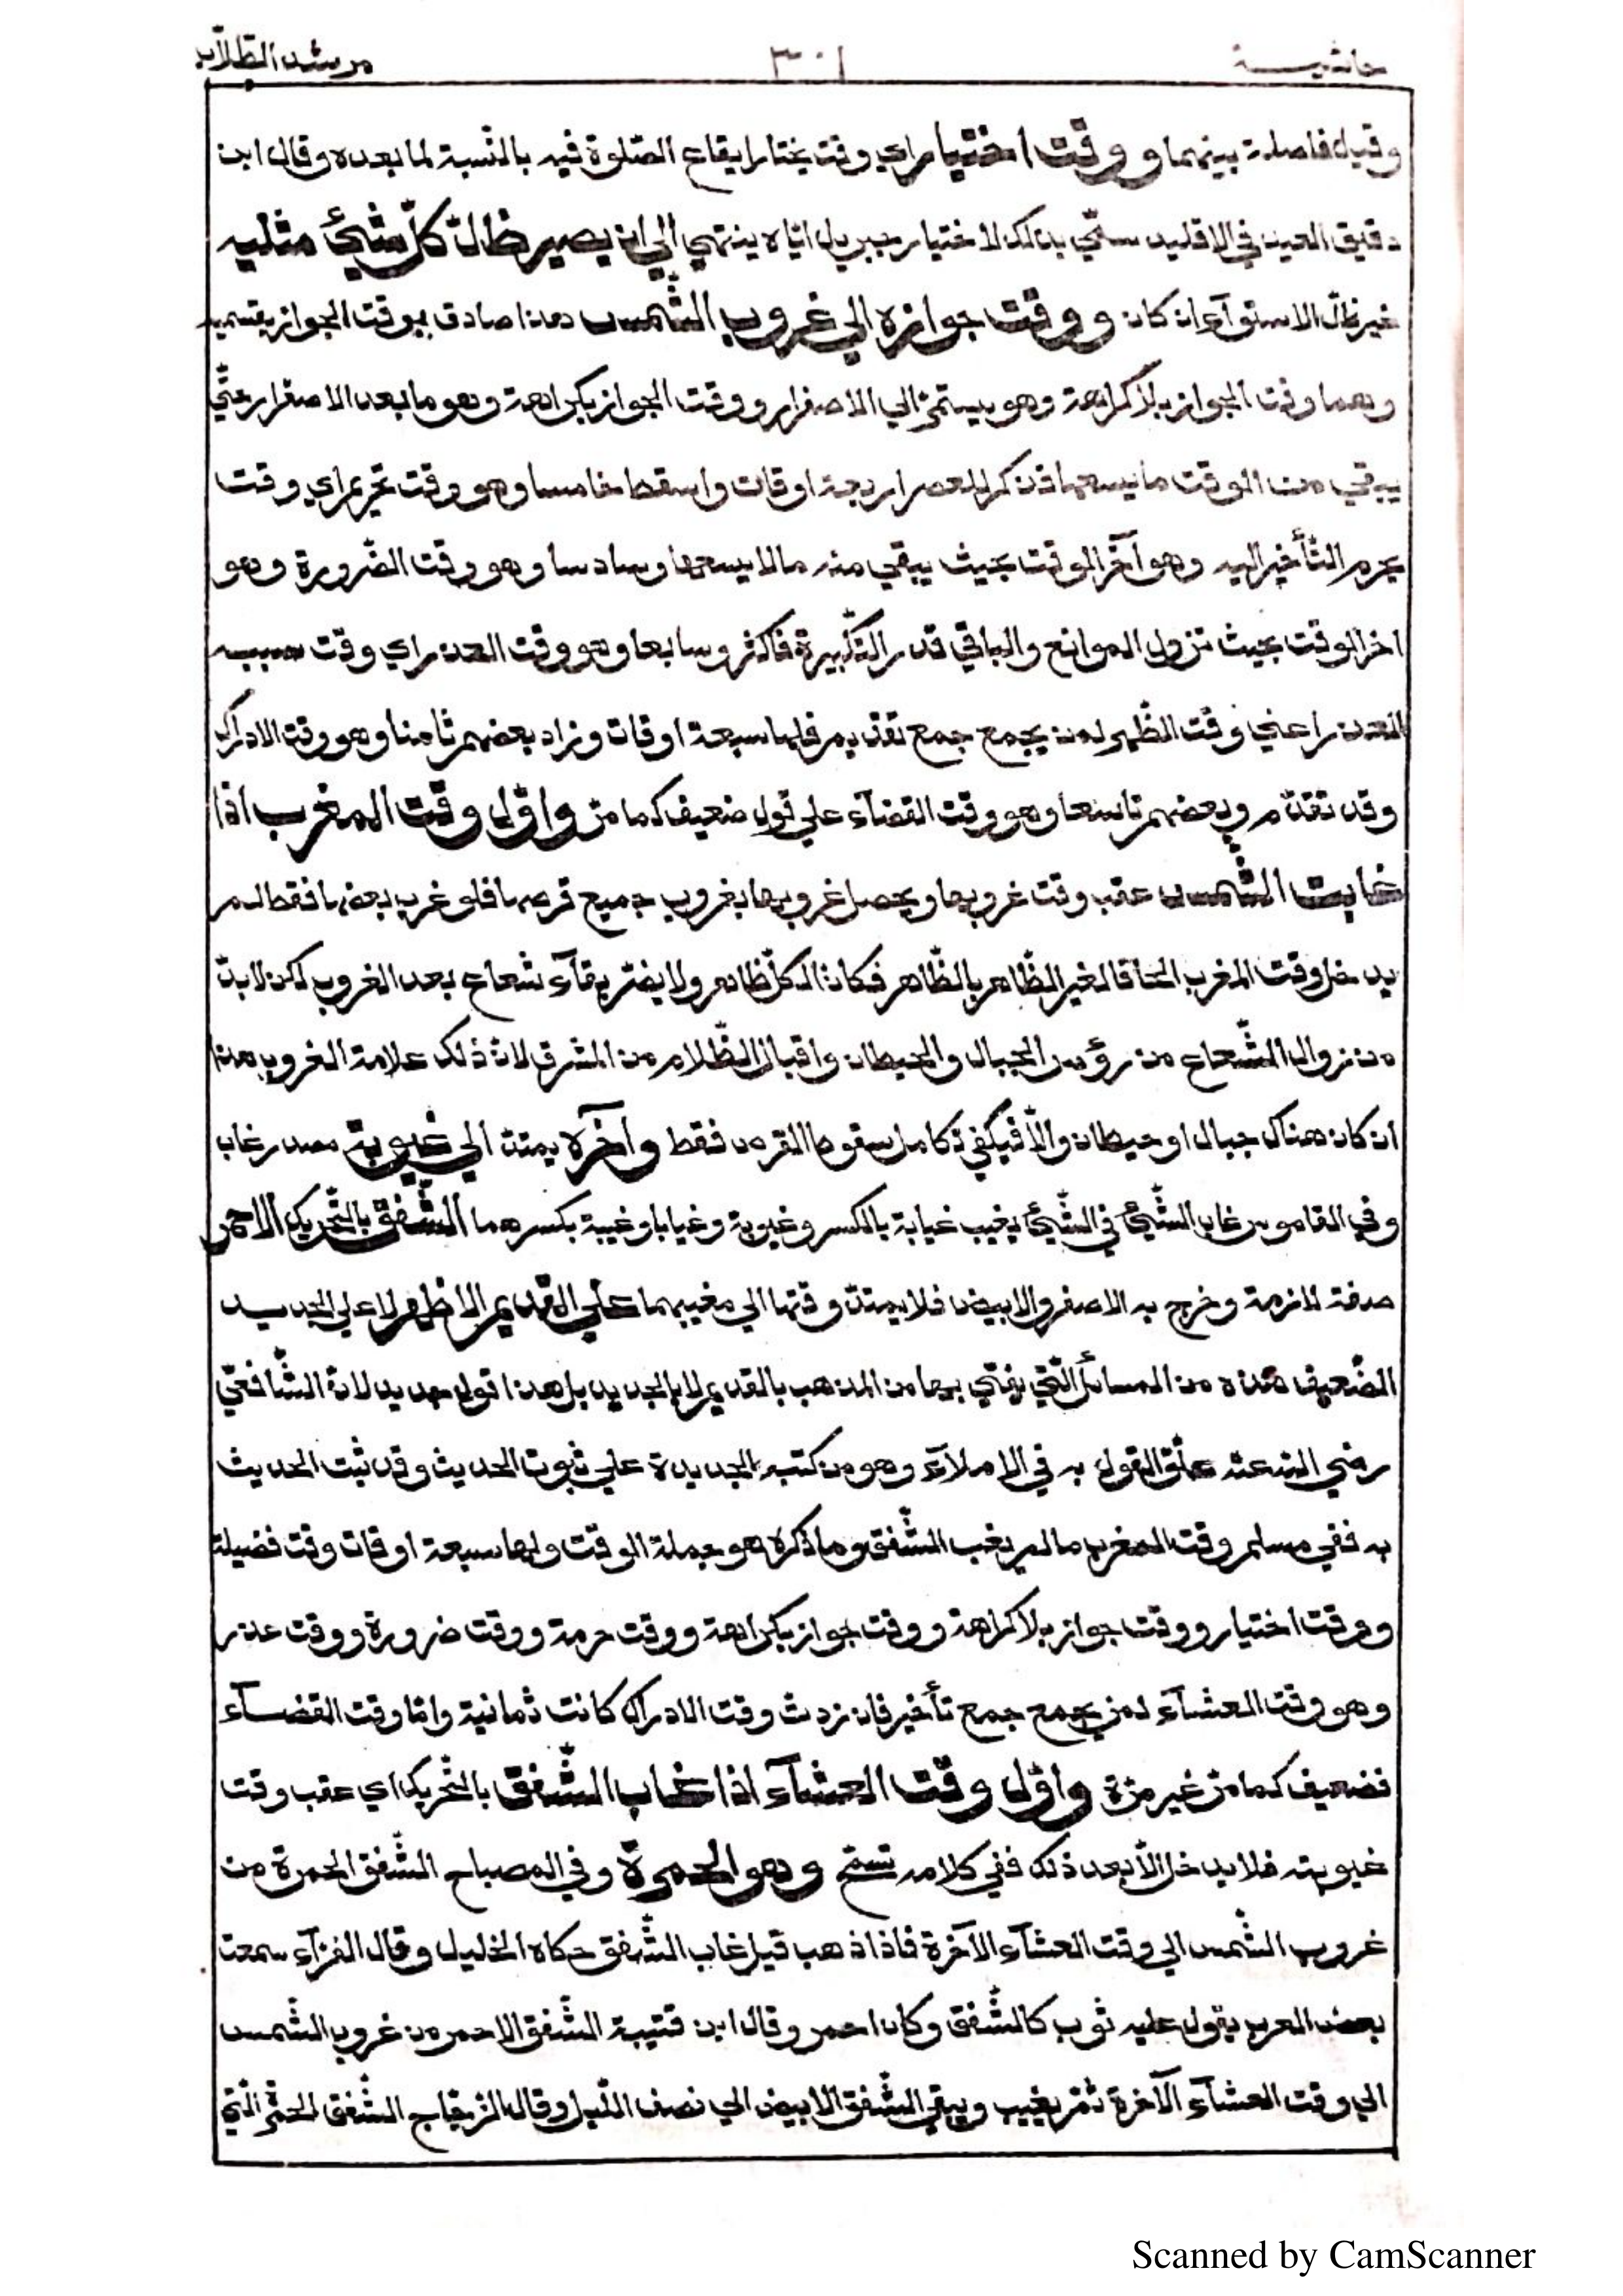 حاشية ٣٠١ مرشد الطلّاب
وقيل فاصلة بينهما ووقت اختيار اي وقت يختار ايقاع الصّلوة فيه بالنّسبة لما بعده وقال ابن
دقيق العيد في الاقليد سمّي بذلك لاختيار جبريل ايّاه ينتهي الي ان يصير ظلّ كلّ شيْئ مثليه
غير ظلّ الاستوآء ان كان ووقت جوازه الي غروب الشّمس هذا صادق بوقت الجواز بقسميه
وهما وقت الجواز بلا كراهة وهو يستمرّ الي الاصفرار ووقت الجواز بكراهة وهو ما بعد الاصفرار حتّي
يبقي من الوقت ما يسعها فذكر للعصر اربعة اوقات واسقط خامسا وهو وقت تحريم اي وقت
يحرم التّأخير اليه وهو آخر الوقت بحيث يبقي منه ما لا يسعها وسادسا وهو وقت الضّرورة وهو
اخر الوقت بحيث تزول الموانع والباقي قدر التّكبيرة فاكثر وسابعا وهو وقت العذر اي وقت سببه
العذر اعني وقت الظّهر لمن يجمع جمع تقديم فلها سبعة اوقات وزاد بعضهم ثامنا وهو وقت الادراك
وقد تقدّم وبعضهم تاسعا وهو وقت القضآء علي قول ضعيف كما مرّ واوّل وقت المغرب اذا
غابت الشّمس عقب وقت غروبها ويحصل غروبها بغروب جميع قرصها فلو غرب بعضها فقط لم
يدخل وقت المغرب الحاقا لغير الظّاهر بالظّاهر فكانّ الكلّ ظاهر ولا يضرّ بقآء شعاع بعد الغروب لكن لا بدّ
من زوال الشّعاع من رؤس الجبال والحيطان واقبال الظّلام من المشرق لانّ ذلك علامة الغروب هذا
ان كان هناك جبال او حيطان والّا فيكفي تكامل سقوط القرص فقط وآخره يمتدّ الي غيوبة مصدر غاب
وفي القاموس غاب الشّيْئ في الشّيْئ يغيب غيابة بالكسر وغيوبة وغيابا وغيبة بكسرهما الشّفق بالتّحريك الاحمر
صفة لازمة وخرج به الاصفر والابيض فلا يمتدّ وقتها الي مغيبهما علي القديم الاظهر لا علي الجديد
الضّعيف هذه من المسائل الّتي يفتي بها من المذهب بالقديم لا بالجديد بل هذا قول جديد لانّ الشّافعيّ
رضي الله عنه علّق القول به في الاملآء وهو من كتبه الجديدة علي ثبوت الحديث وقد ثبت الحديث
به ففي مسلم وقت المغرب ما لم يغب الشّفق وما ذكره هو جملة الوقت ولها سبعة اوقات وقت فضيلة
ووقت اختيار ووقت جواز بلا كراهة ووقت جواز بكراهة ووقت حرمة ووقت ضرورة ووقت عذر
وهو وقت العشآء لمن يجمع جمع تأخير فان زدت وقت الادراك كانت ثمانية وامّا وقت القضآء
فضعيف كما مرّ غير مرّة واوّل وقت العشآء اذا غاب الشّفق بالتّحريك اي عقب وقت
غيوبته فلا يدخل الّا بعد ذلك ففي كلامه تسمّح وهو الحمرة وفي المصباح الشّفق الحمرة من
غروب الشّمس الي وقت العشآء الآخرة فاذا ذهب قيل غاب الشّفق حكاه الخليل وقال الفرّآء سمعت
بعض العرب يقول عليه ثوب كالشّفق وكان احمر وقال ابن قتيبة الشّفق الاحمر من غروب الشّمس
الي وقت العشآء الآخرة ثمّ يغيب ويبقي الشّفق الابيض الي نصف اللّيل وقال الزّجّاج الشّفق الحمرة الّتي
Scanned by CamScanner